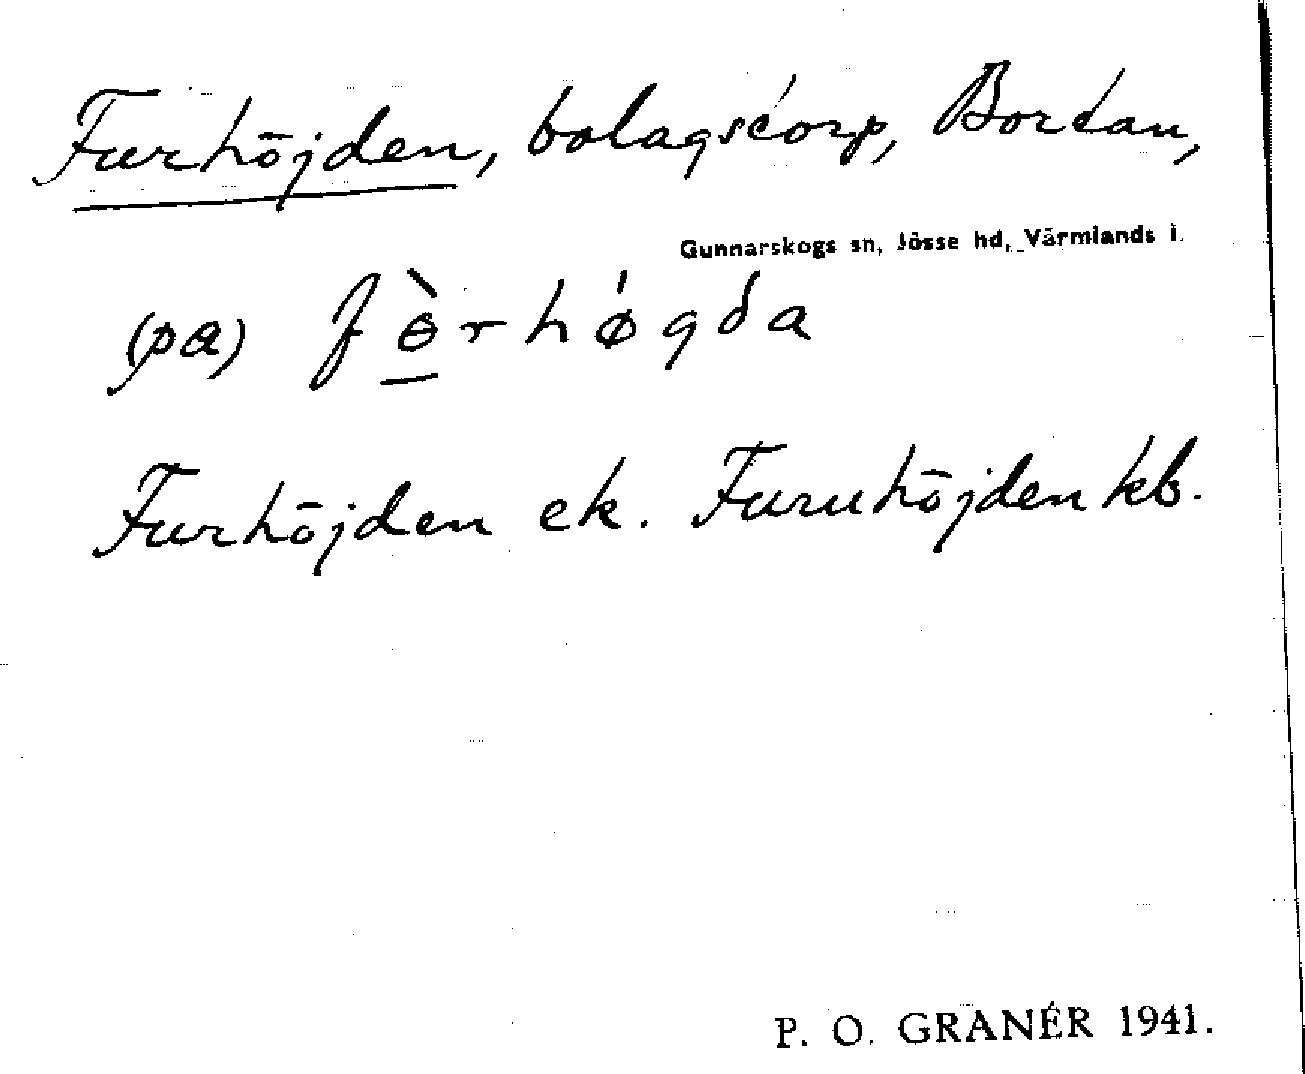 Furhöjden, bolagstorp, Bortan,
Gunnarskogs sn, Jösse hd, Värmlands l.
(pa) fɵ̀rhǿgda
Furhöjden ek. Furuhöjden kb.
P. O. GRANÉR 1941.